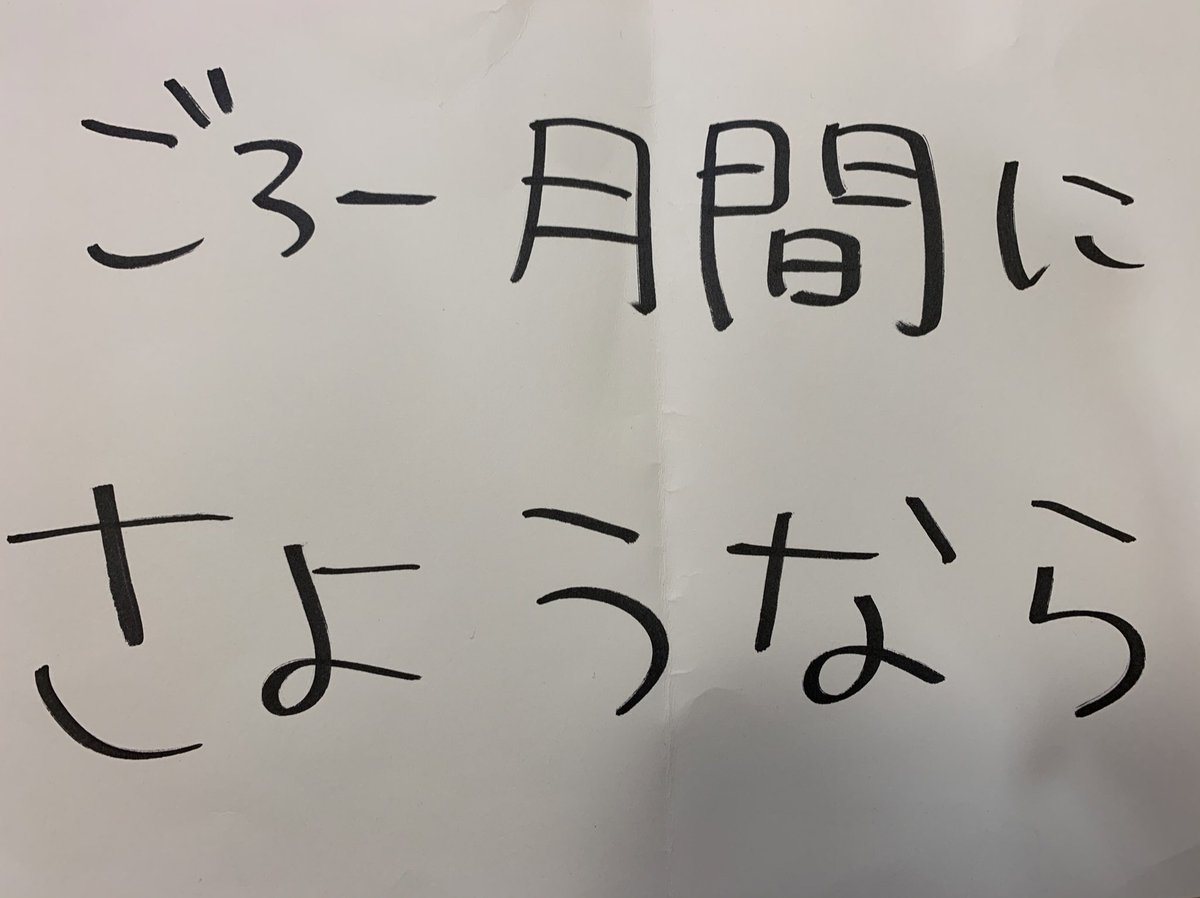 ごろー月間に
さようなら